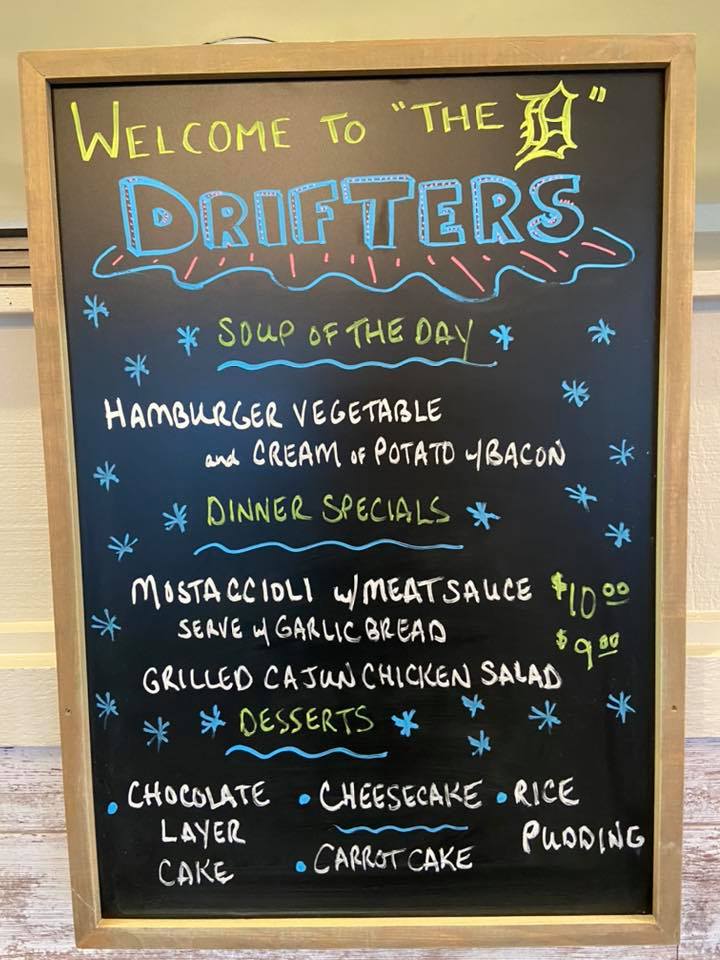 WELCOME TO "THE D"
DRIFTERS
SOUP OF THE DAY
HAMBURGER VEGETABLE
and CREAM OF POTATO w/BACON
DINNER SPECIALS
MOSTACCIOLI w/MEATSAUCE $10.00
SERVE w/ GARLIC BREAD
$9.00
GRILLED CAJUN CHICKEN SALAD
DESSERTS
• CHOCOLATE LAYER CAKE
• CHEESECAKE
• CARROT CAKE
• RICE PUDDING